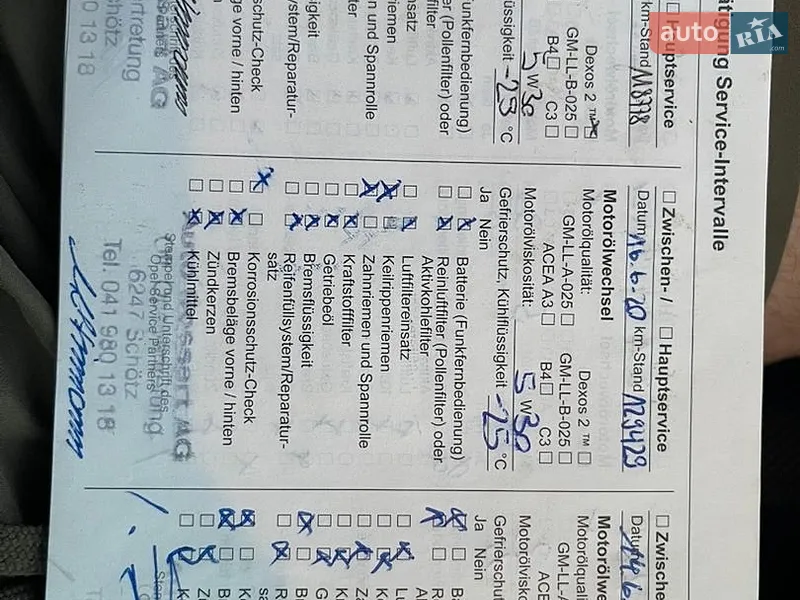 tigung Service-Intervalle
Hauptservice
km-Stand 118978
Dexos 2 ™
GM-LL-B-025
B4 C3
5W30
üssigkeit -25 °C
Funkfernbedienung)
r (Pollenfilter) oder
filter
insatz
riemen
n und Spannrolle
sigkeit
ystem/Reparatur-
schutz-Check
ge vorne / hinten
AG
rtretung
chötz
0 13 18
Zwischen- / Hauptservice
Datum 16.6.20 km-Stand 129429
Motorölwechsel
Motorölqualität: Dexos 2 ™
GM-LL-A-025 GM-LL-B-025
ACEA A3 B4 C3
Motorölviskosität: 5W30
Gefrierschutz, Kühlflüssigkeit -25 °C
Ja Nein
Batterie (Funkfernbedienung)
Reinluftfilter (Pollenfilter) oder
Aktivkohlefilter
Luftfiltereinsatz
Keilrippenriemen
Zahnriemen und Spannrolle
Kraftstofffilter
Getriebeöl
Bremsflüssigkeit
Reifenfüllsystem/Reparatur-
satz
Korrosionsschutz-Check
Bremsbeläge vorne / hinten
Zündkerzen
Kühlmittel
AG
Stempel und Unterschrift des
Opel Service Partners
6247 Schötz
Tel. 041 980 13 18
Zwische
Datum 14.6
Motorölwe
Motorölqualit
GM-LL-A
ACE
Motorölvis
Gefrierschut
Ja Nein
auto RIA
.com